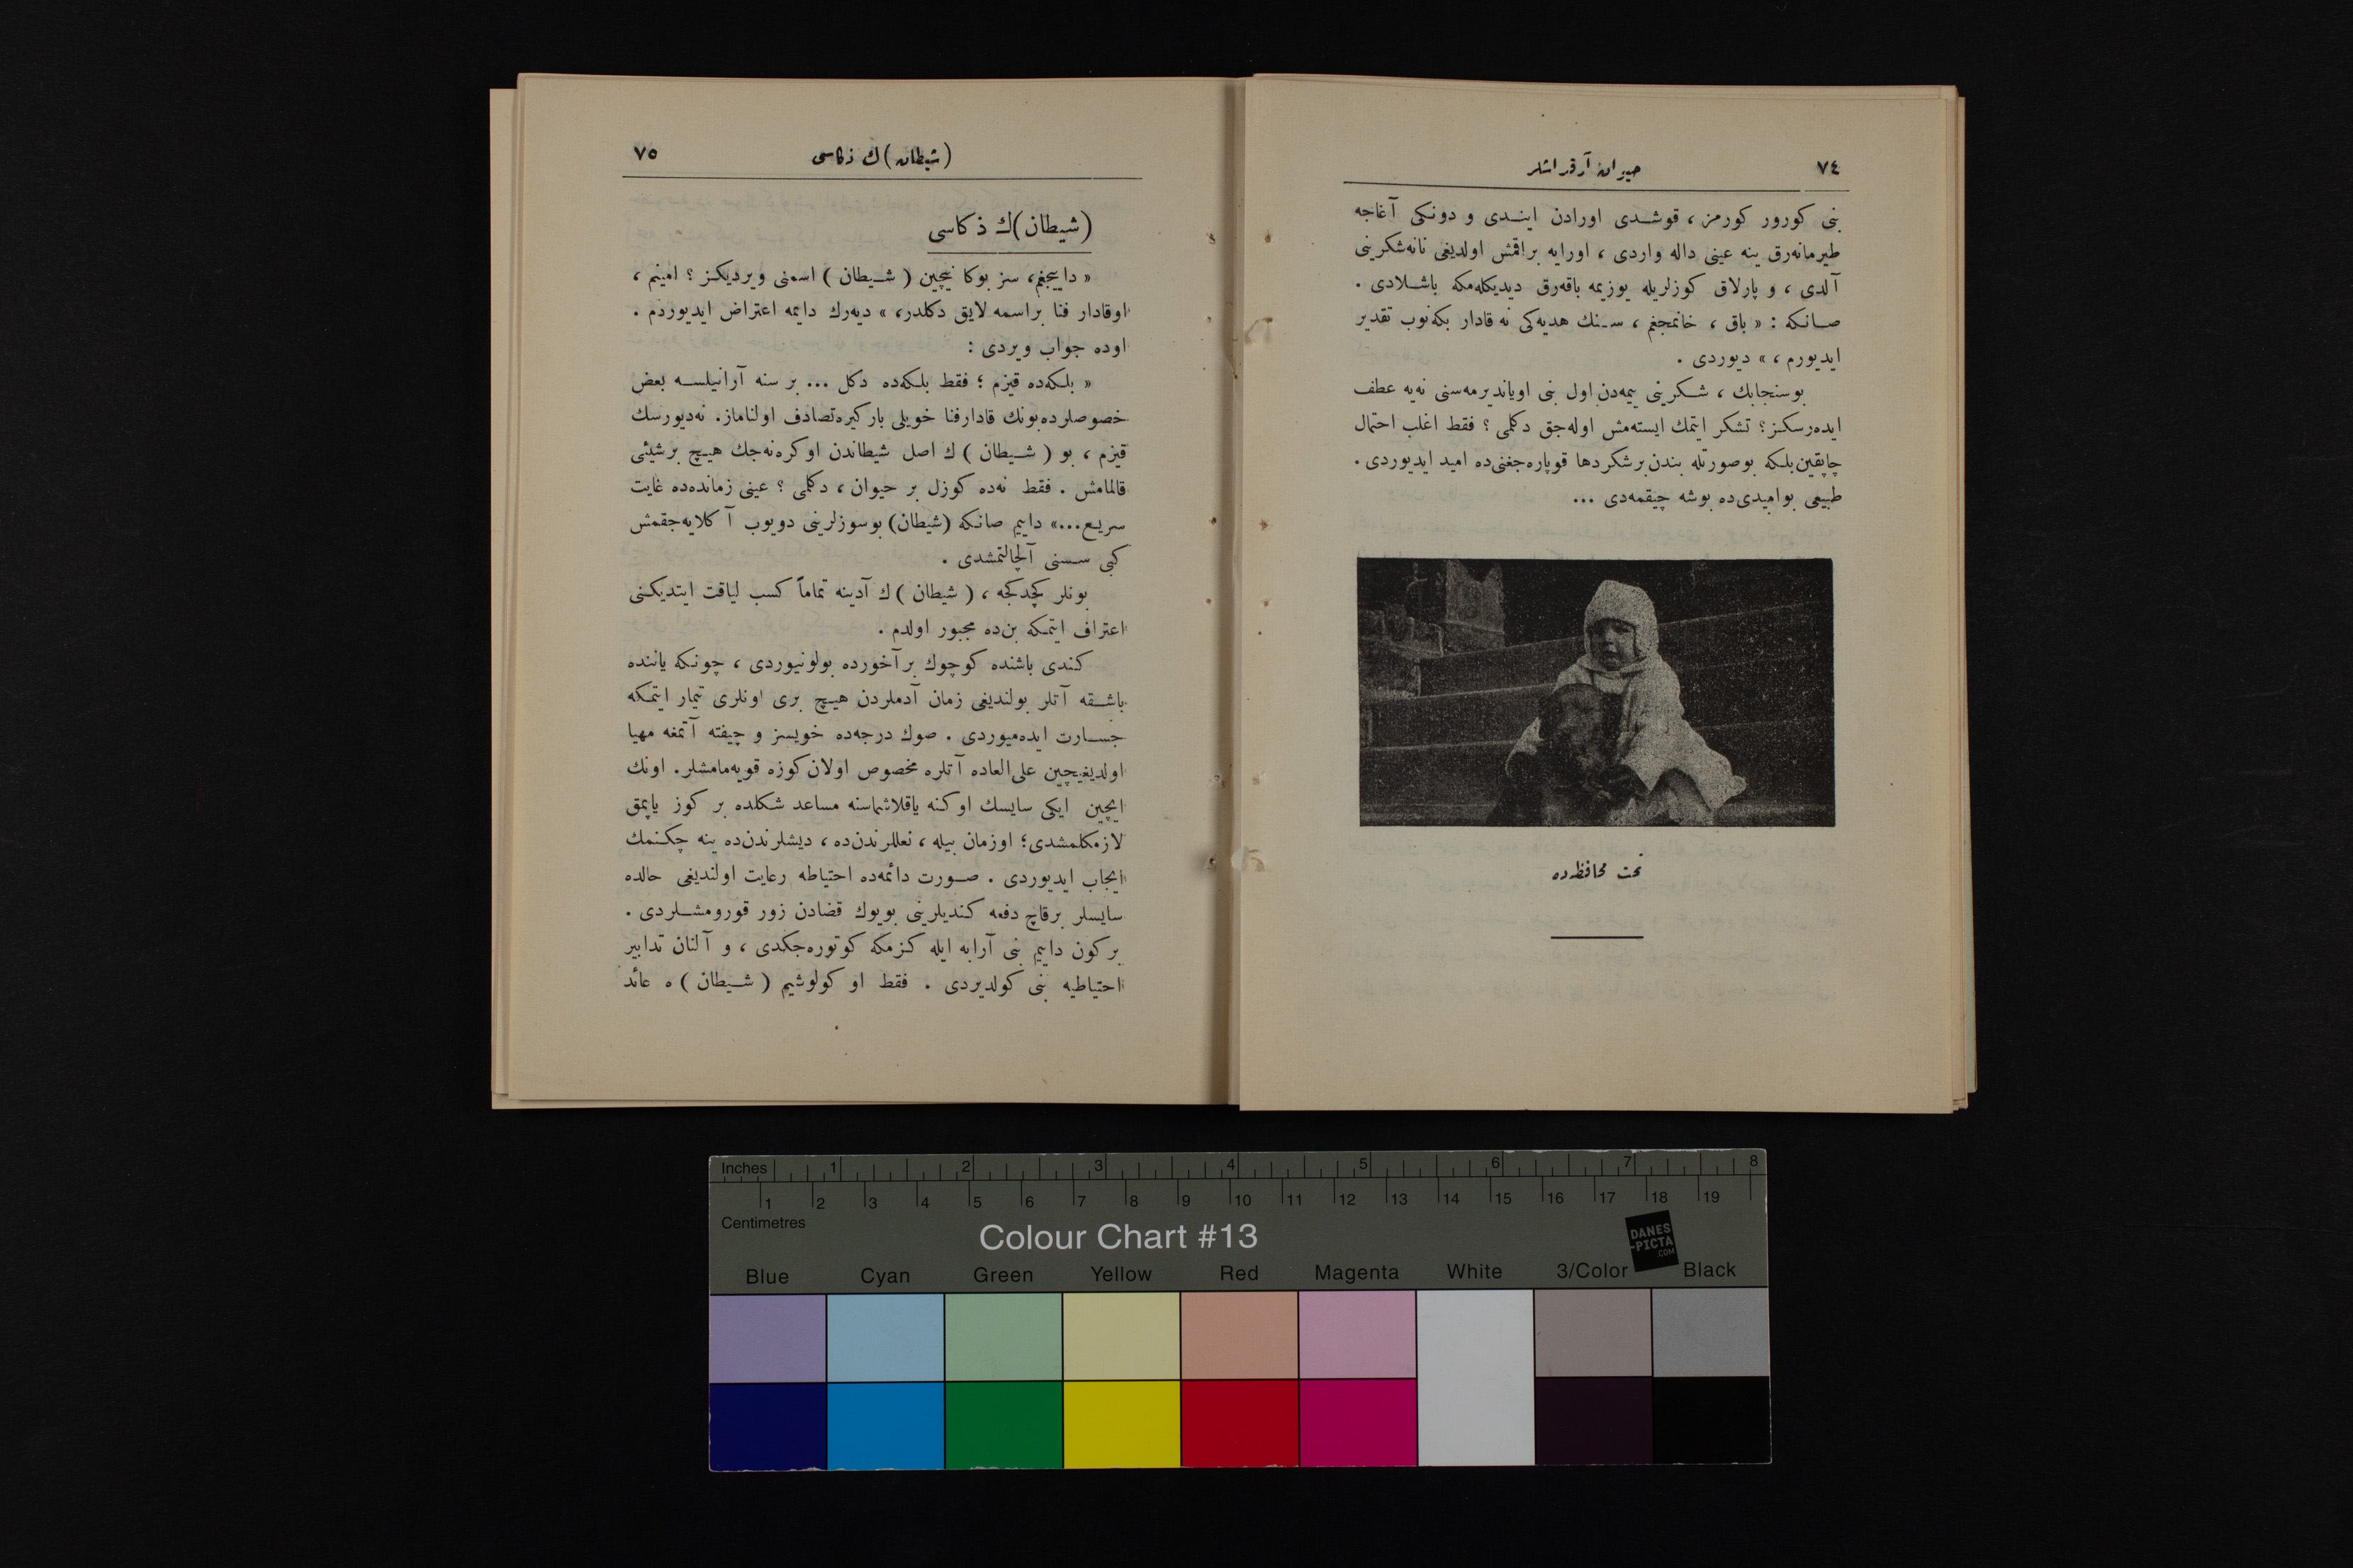 ٧٤
حیوان آرقداشلر
بنی کورور کورمز ، قوشدی اورادن ایندی و دونکی آغاجه
طیرمانه‌رق ینه عینی داله واردی ، اورایه براقمش اولدیغی نانه‌شکرینی
آلدی ، و پارلاق کوزلریله یوزیمه باقه‌رق دیدیکله‌مکه باشلادی .
صانکه : « باق ، خانمجغم ، سنك هدیه‌کی نه قادار بکه‌نوب تقدیر
ایدیورم ، » دیوردی .
بوسنجابك ، شکرینی ییمه‌دن اول بنی اویاندیرمه‌سنی نه‌یه عطف
ایده‌رسکز؟ تشکر ایتمك ایسته‌مش اوله‌جق دکلمی ؟ فقط اغلب احتمال
چاپقین بلکه بوصورتله بندن برشکر دها قوپاره‌جغنی‌ده امید ایدیوردی .
طبیعی بوامیدی‌ده بوشه چیقمه‌دی ...
تحت محافظه‌ده
(شیطان)ك ذکاسی
٧٥
(شیطان)ك ذکاسی
« داییجغم، سز بوکا نیچین ( شیطان ) اسمنی ویردیکز ؟ امینم ،
اوقادار فنا براسمه لایق دکلدر، » دیه‌رك دایمه اعتراض ایدیوردم .
اوده جواب ویردی :
« بلکه‌ده قیزم ؛ فقط بلکه‌ده دکل ... بر سنه آرانیلسه بعض
خصوصلرده بونك قادار فنا خویلی بارکیره تصادف اولناماز. نه‌دیورسك
قیزم ، بو ( شیطان )ك اصل شیطاندن اوکره‌نه‌جك هیچ برشیئی
قالمامش . فقط نه‌ده کوزل بر حیوان ، دکلمی ؟ عینی زمانده‌ده غایت
سریع...» داییم صانکه (شیطان) بوسوزلرینی دویوب آکلایه‌جقمش
کبی سسنی آلچالتمشدی .
بونلر کچدکجه ، ( شیطان )ك آدینه تماماً کسب لیاقت ایتدیکنی
اعتراف ایتمکه بن‌ده مجبور اولدم .
کندی باشنده کوچوك بر آخورده بولونیوردی ، چونکه یاننده
باشقه آتلر بولندیغی زمان آدملردن هیچ بری اونلری تیمار ایتمکه
جسارت ایده‌میوردی . صوك درجه‌ده خویسز و چیفته آتمغه مهیا
اولدیغیچین علی‌العاده آتلره مخصوص اولان کوزه قویه‌مامشلر. اونك
ایچین ایکی سایسك اوکنه یاقلاشماسنه مساعد شکلده بر کوز یاپمق
لازمکلمشدی؛ اوزمان بیله ، نعللرندن‌ده ، دیشلرندن‌ده ینه چکنمك
ایجاب ایدیوردی . صورت دائمه‌ده احتیاطه رعایت اولندیغی حالده
سایسلر برقاچ دفعه کندیلرینی بویوك قضادن زور قورومشلردی .
برکون داییم بنی آرابه ایله کزمکه کوتوره‌جکدی ، و آلنان تدابیر
احتیاطیه بنی کولدیردی . فقط او کولوشیم ( شیطان )ه عائد
Inches 1 2 3 4 5 6 7 8
1 2 3 4 5 6 7 8 9 10 11 12 13 14 15 16 17 18 19
Centimetres
Colour Chart #13
DANES
-PICTA
.COM
Blue Cyan Green Yellow Red Magenta White 3/Color Black